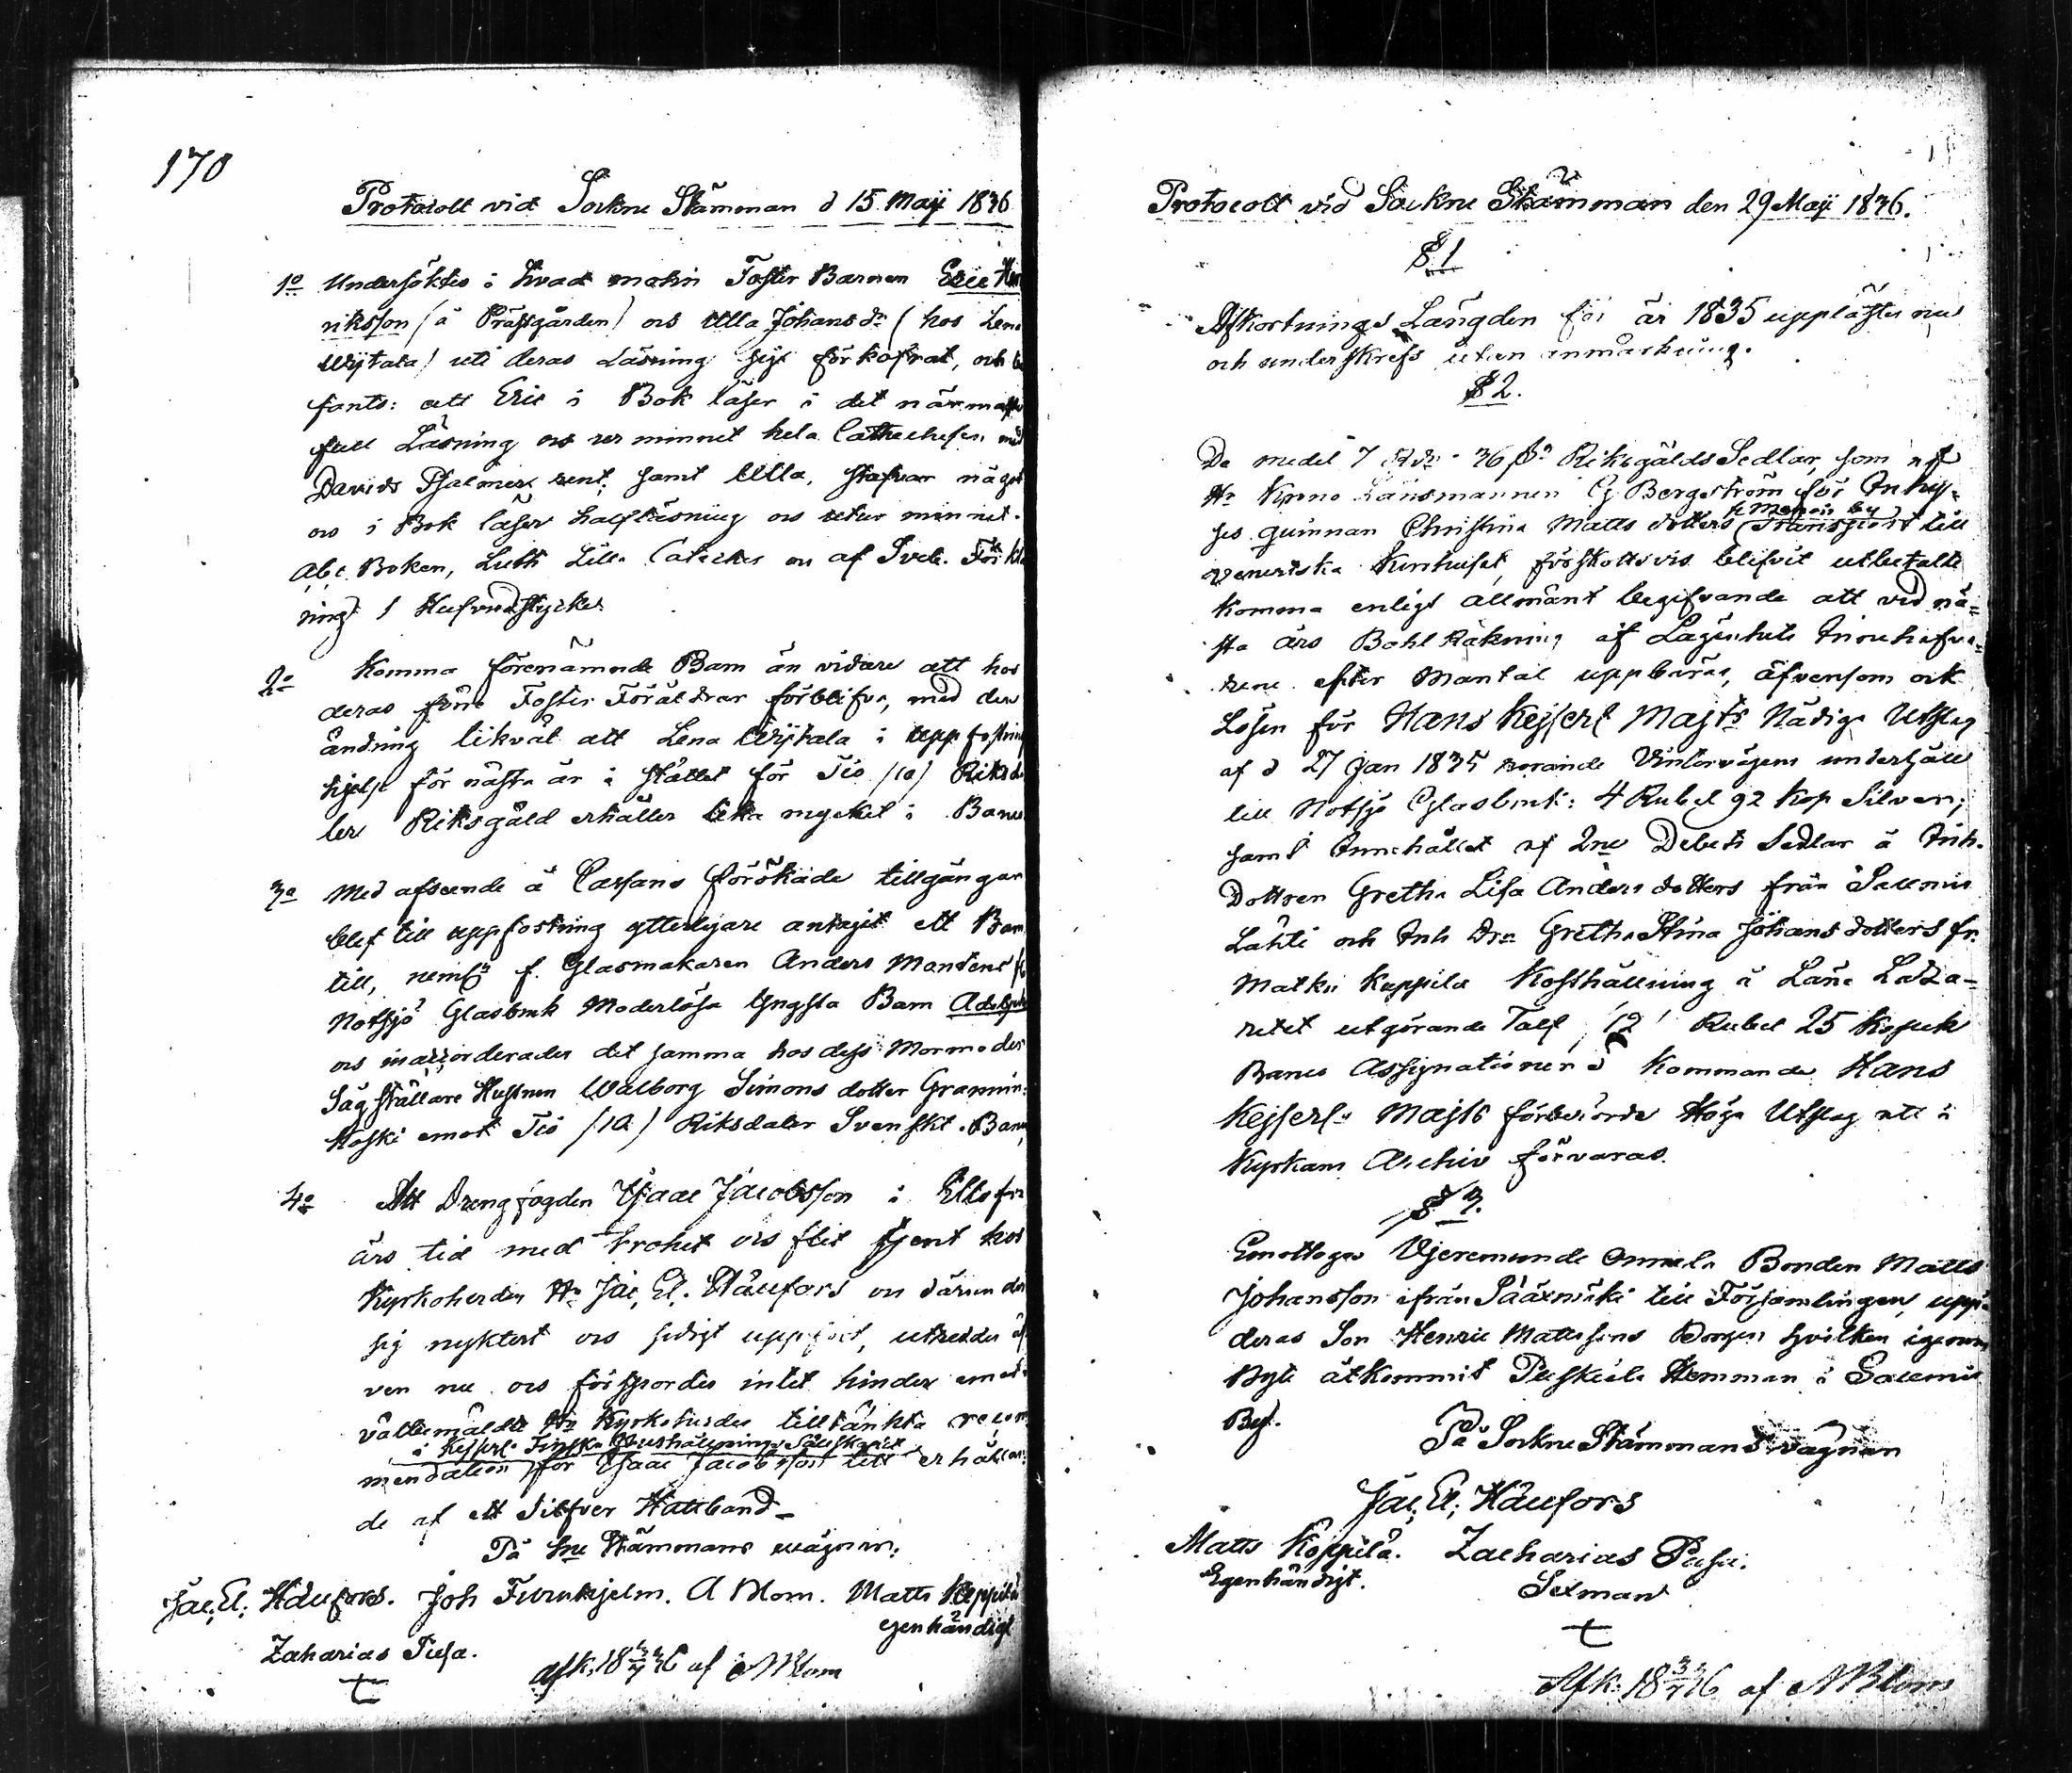 170
Protocoll vid Sockne Stämman d 15 Maji 1836
1o Undersöktes i hvad mohn Foster Barnen Eric Hen
riksson (å Prästgården) ocs Ulla Johansdr (hos Lena
Wijtala) uti deras Läsning sig förkofrat, och be
fants: att Eric i Bok läser i det närmaste
full Läsning ocs ur minnet hela Cathechesen med
Davids Psalmer rent; samt Ulla, stafvar något
ocs i Bok läser halfläsning ocs utur minnet.
Abc Boken, Luth Lilla Cateches ocs af Sveb. Förkla
ning 1 Hufvudstycket
2o Komma förenämnde Barn än vidare att hos
deras förra Foster Föräldrar förblifva, med den
ändring likväl att Lena Wijtala i uppfostrings
hjelp för nästa år i stället för Tio (10) Riksda
ler Riksgäld erhåller lika mycket i Banco
3o Med afseende å Cassans förökade tillgångar
blef till uppfostring ytterligare antagit ett Barn
till, neml f. Glasmakaren Anders Mandens fr
Notsjö Glasbruk Moderlösa Yngsta Barn
ocs inaccorderades det samma hos dess Mormoder
Sågställare Hustrun Walborg Simons dotter Grannin
koski emot Tio (10) Riksdaler Svenskt Banco,
4o Att Drengfogden Isaac Jacobsson i
års tid med trohet ocs flit tjent hos
Kyrkoherden Hr Jac. El. Håufors ocs därunder
sig nyktert ocs sedigt uppfört, utreddes äf
ven nu ocs försports intet hinder emot
välbemäldte Hr Kyrkoherdes tilltänkta recom
i Kejserl. Finska Hushållnings Sällskapet
mendation för Isaac Jacobsson till erhållan
de af ett Silfver Hattband
På Sne Stämmans vägnar:
Jac. El. Håufors. Joh Furuhjelm. A Blom. Matts Koppila
egenhändigt
Zacharias Pusa.
Afk. 18 36 af A Blom
Protocoll vid Sockne Stämman den 29 Maji 1836.
§ 1
Afkortnings Längden för år 1835 upplästes nu
och underskrefs utan anmärkning.
§ 2.
De medel 7 Rdr 36 sk Riksgälds Sedlar, som af
Hr Krono Länsmannen G Bergström för Inhy=
ses quinnan Christina Matts dotters Transport till
fr Menois by
veneriska Kurhuset, förskottsvis blifvit utbetalte
komma enligt allmänt begifvande att vid nä=
sta års Bohl Räkning af Lägenhets Innehafva=
rene efter Mantal uppbäras, äfvensom ock
Lösen för Hans Kejserl Majts Nådiga Utslag
af d 27 Jan 1835 rörande Vintervägens underhåll
till Notsjö Glasbruk: 4 Rubel 92 Kop Silver;
samt Innehållet af 2ne Debets Sedlar å Inh.
Dottren Gretha Lisa Anders dotters från Salmis
Lahti och Inh Drn Gretha Stina Johans dotters fr.
Matku Kuppila Kosthållning å Läne Laza=
retet utgörande Tolf /12/ Rubel 25 Kopek
Banco Assignationer. Kommande Hans
Kejserl Majts förberörde Höga Utslag att i
Kyrkans Archiv förvaras.
§ 3.
Emottages Urjeremunde Onnela Bonden Matts
Johansson ifrån Sääxmäki till Församlingen, uppå
deras Son Henric Mattssons Borgen hvilken igenom
Byte åtkommit Puskiala Hemman i Salmis
By.
På Sockne Stämmans vägnar
Jac. El. Håufors
Matts Koppila. Zacharias Pusa.
Egenhändigt. Sexman
Afk. 18 36 af A Blom